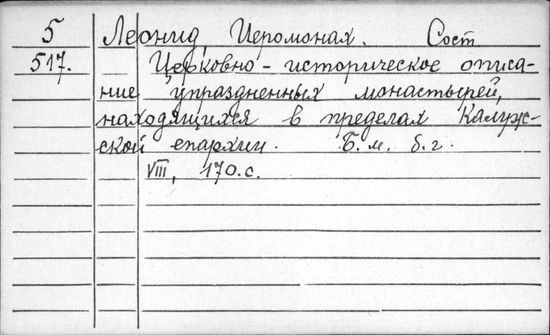 5 Леонид, Иеромонах. Сост.
517. Церковно-историческое описа-
ние упраздненных монастырей,
находящихся в пределах Калуж-
ской епархии. Б.м. б.г.
VIII, 170.с.